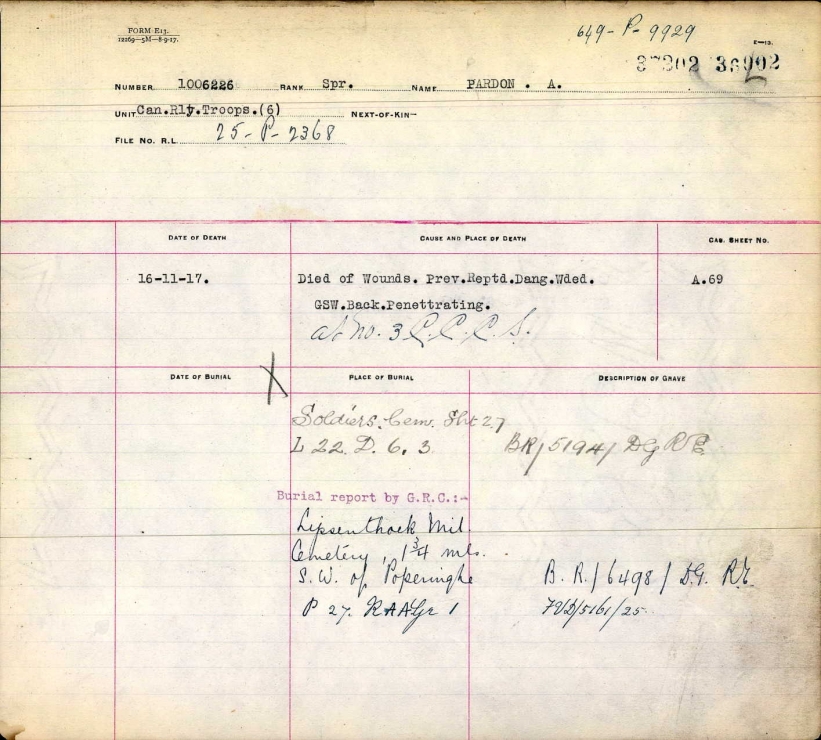 FORM E13.
12269—5M—8-9-17.
649-P-9929
E—13.
NUMBER 1006226 RANK Spr. NAME PARDON . A.
UNIT Can.Rly.Troops.(6) NEXT-OF-KIN—
FILE NO. R.L. 25-P-2368
DATE OF DEATH CAUSE AND PLACE OF DEATH CAS. SHEET NO.
16-11-17. Died of Wounds. Prev.Reptd.Dang.Wded. A.69
GSW.Back.Penettrating.
at No. 3 C.C.C.S.
DATE OF BURIAL X PLACE OF BURIAL DESCRIPTION OF GRAVE
Soldiers. Cem. Sht 27
L 22. D. 6. 3. BR/5194/ DG R E
Burial report by G.R.C.:-
Lijssenthoek Mil.
Cemetery, 1 3/4 mls.
S.W. of Poperinghe B. R./6498/ D.G. R.E.
P 27. R A A Gr 1